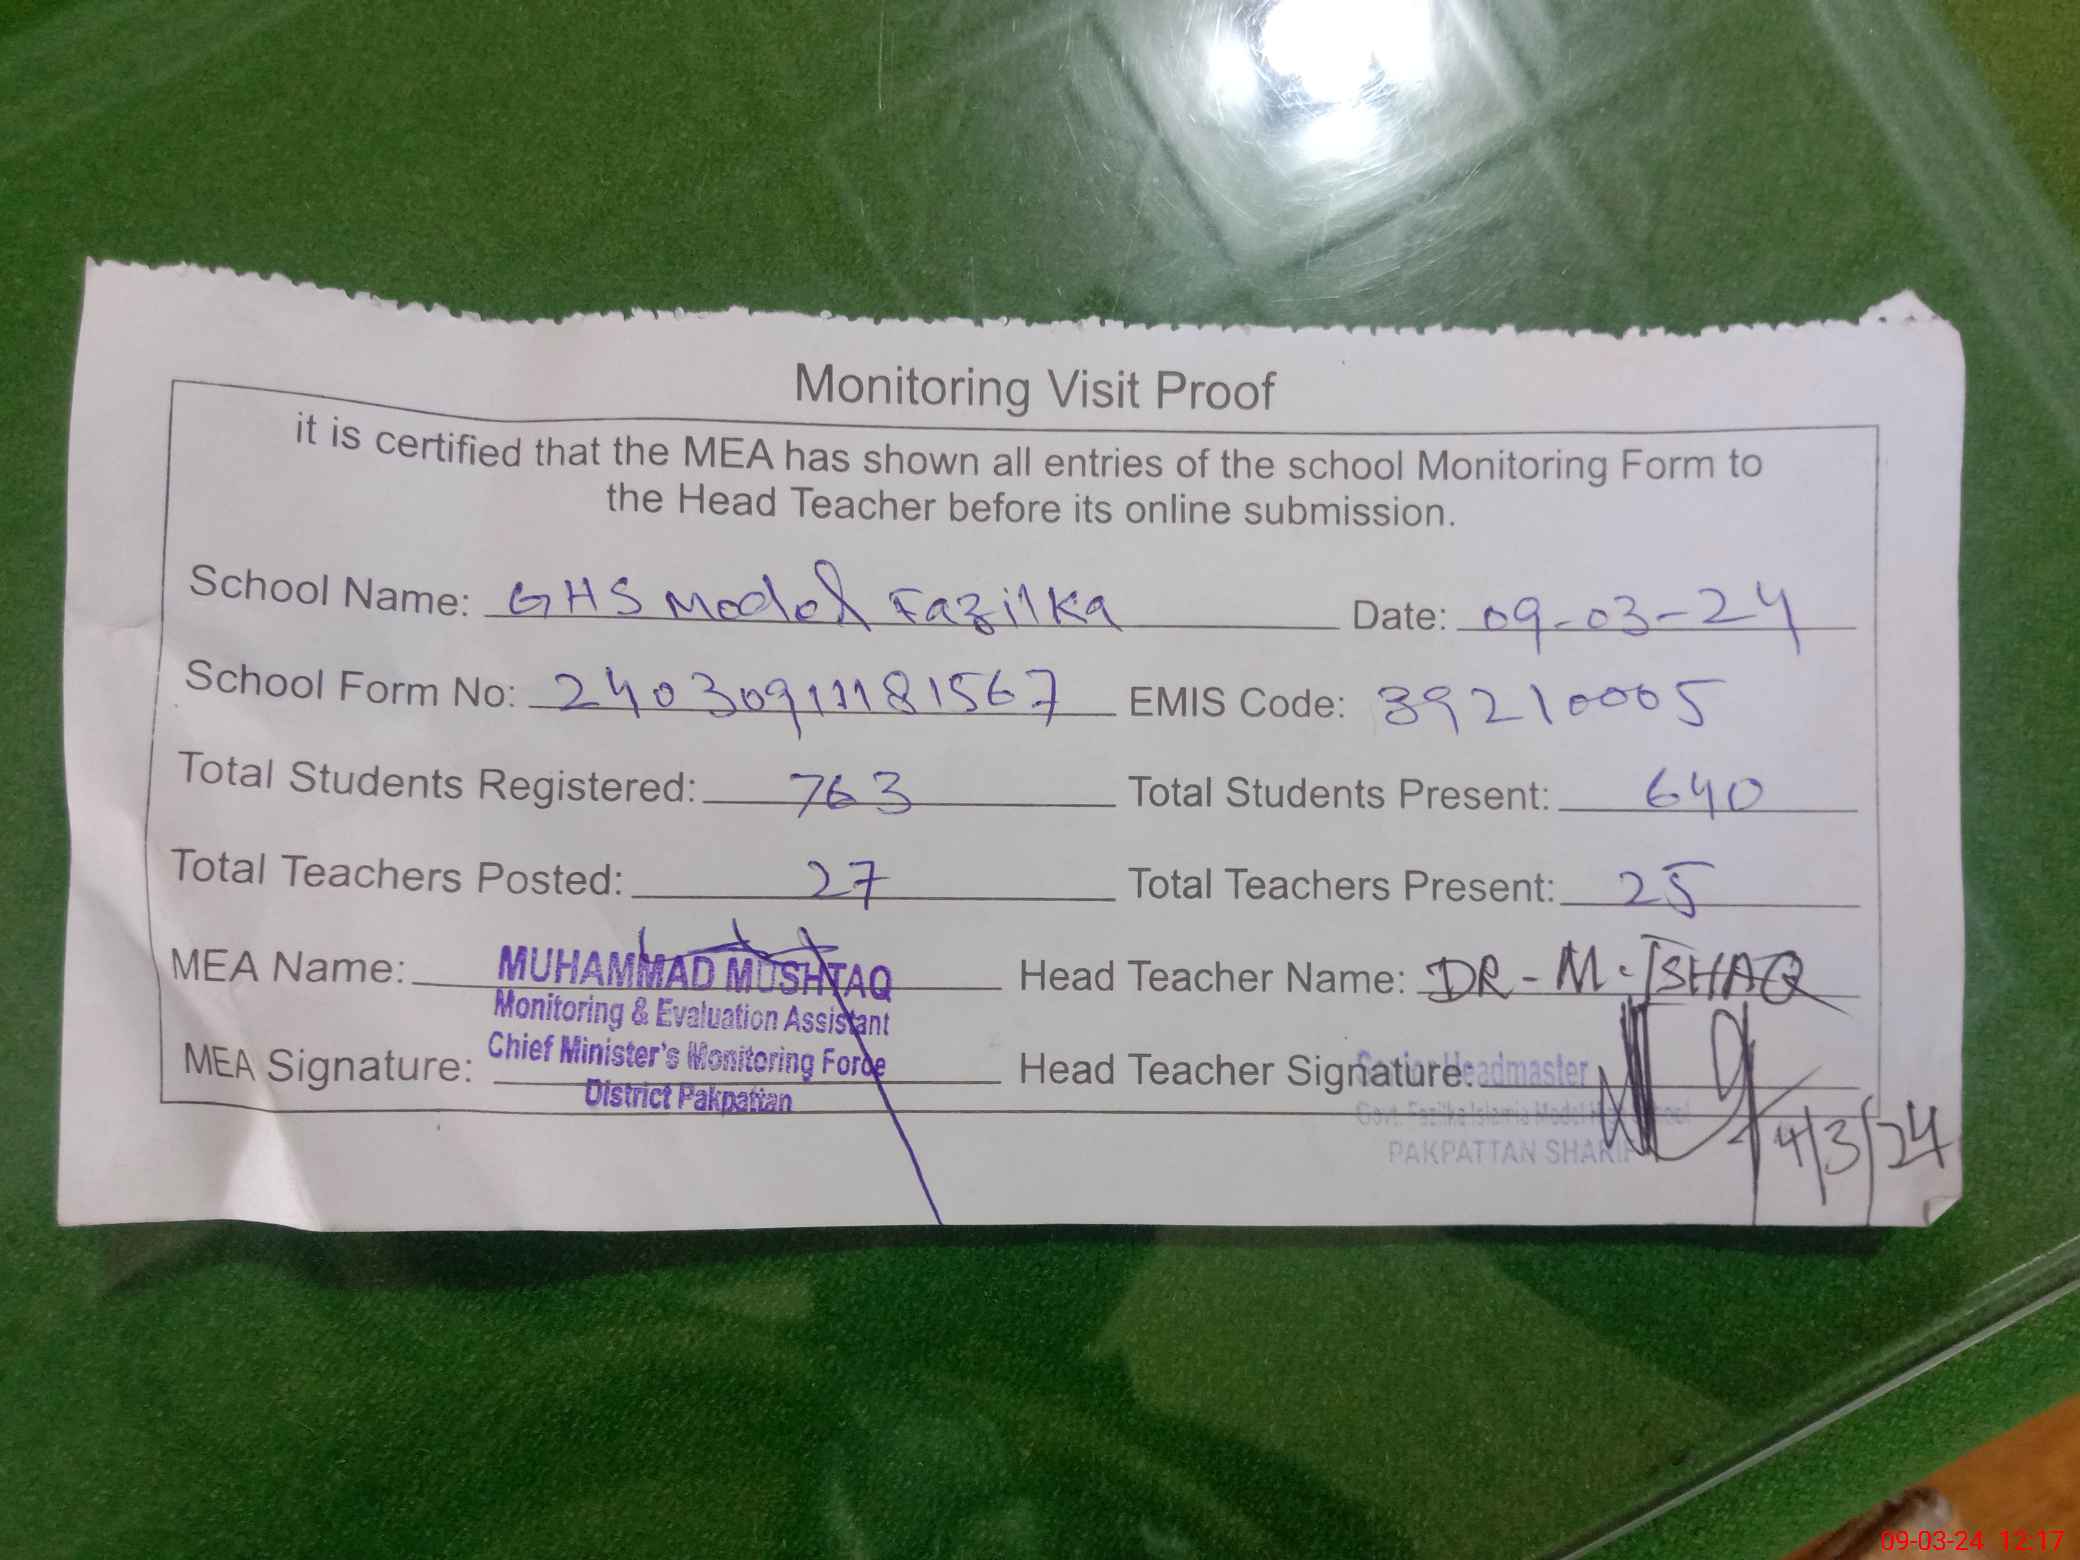 Monitoring Visit Proof
it is certified that the MEA has shown all entries of the school Monitoring Form to
the Head Teacher before its online submission.
School Name: GHS Model Fazilka Date: 09-03-24
School Form No: 24030911181567 EMIS Code: 39210005
Total Students Registered: 763 Total Students Present: 640
Total Teachers Posted: 27 Total Teachers Present: 25
MEA Name: MUHAMMAD MUSHTAQ Head Teacher Name: DR-M.ISHAQ
Monitoring & Evaluation Assistant
Chief Minister's Monitoring Force
MEA Signature: Head Teacher Signature: Senior Headmaster
District Pakpattan
Govt. Fazilka Islamia Model High School
PAKPATTAN SHARIF
4/3/24
09-03-24 12:17